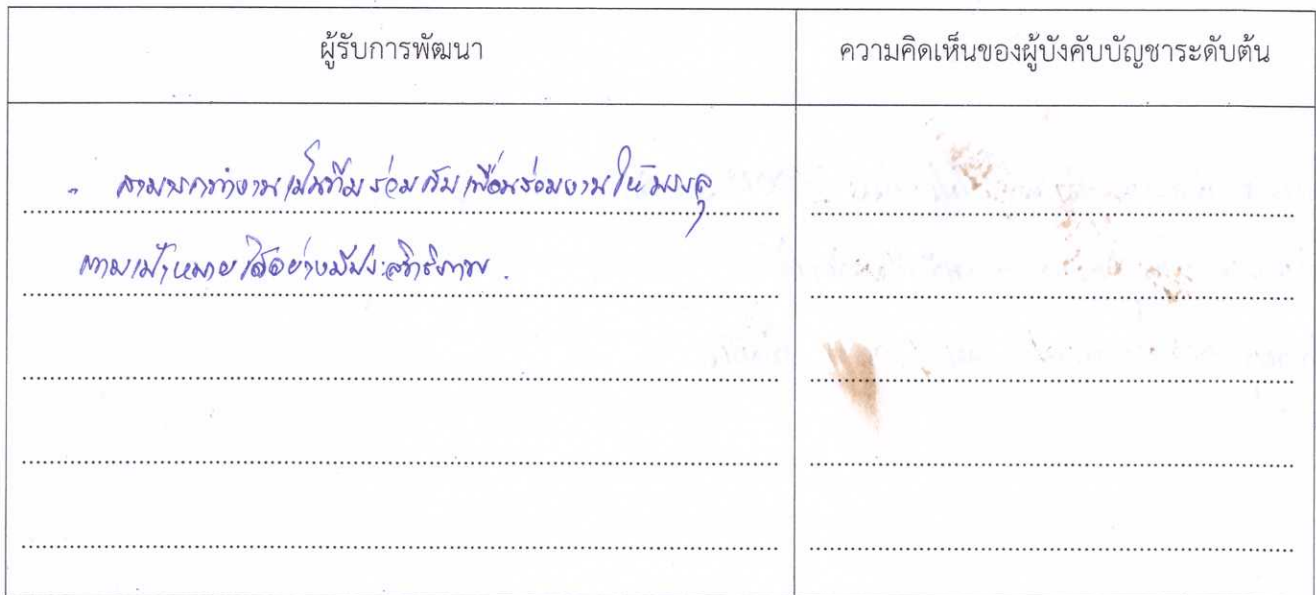 ผู้รับการพัฒนา
ความคิดเห็นของผู้บังคับบัญชาระดับต้น
- สามารถทำงานเป็นทีมร่วมกับเพื่อนร่วมงานให้บรรลุ
ตามเป้าหมายได้อย่างมีประสิทธิภาพ.